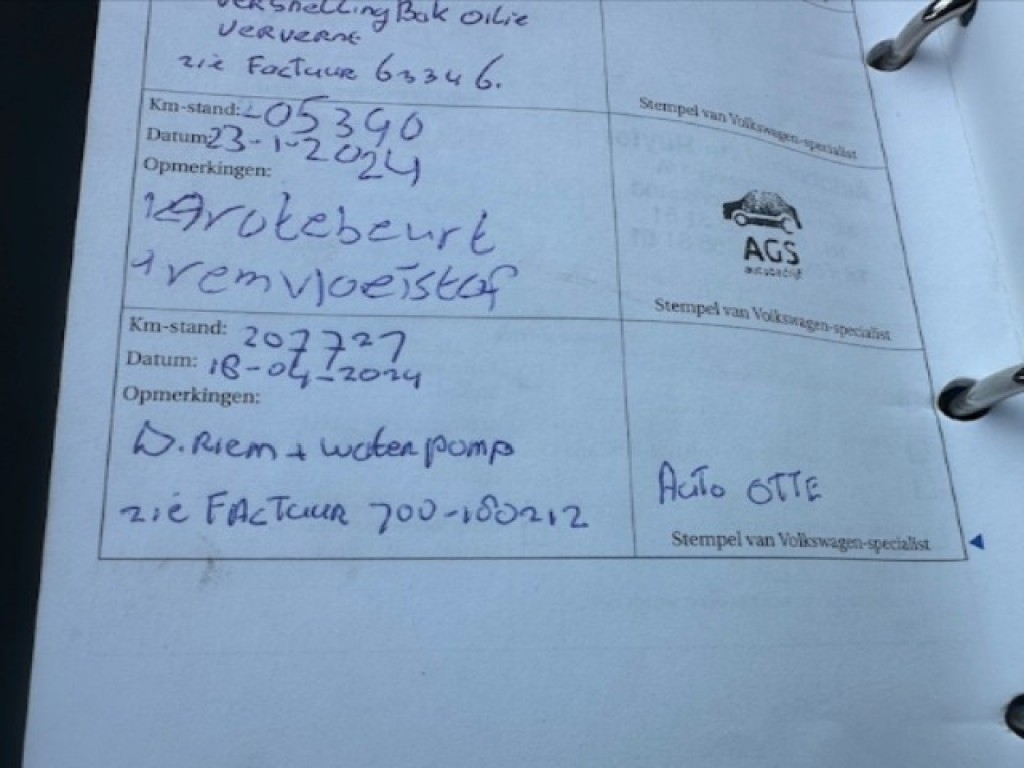 Versnelling Bak Oilie
Ververst
zie Factuur 63346.
Stempel van Volkswagen-specialist
Km-stand: 205390
Datum: 23-1-2024
Opmerkingen:
Grotebeurt
+ remvloeistof
AGS
autobedrijf
Stempel van Volkswagen-specialist
Km-stand: 207727
Datum: 18-04-2024
Opmerkingen:
D.Riem + waterpomp
zie FACTUUR 700-180212
Auto OTTE
Stempel van Volkswagen-specialist